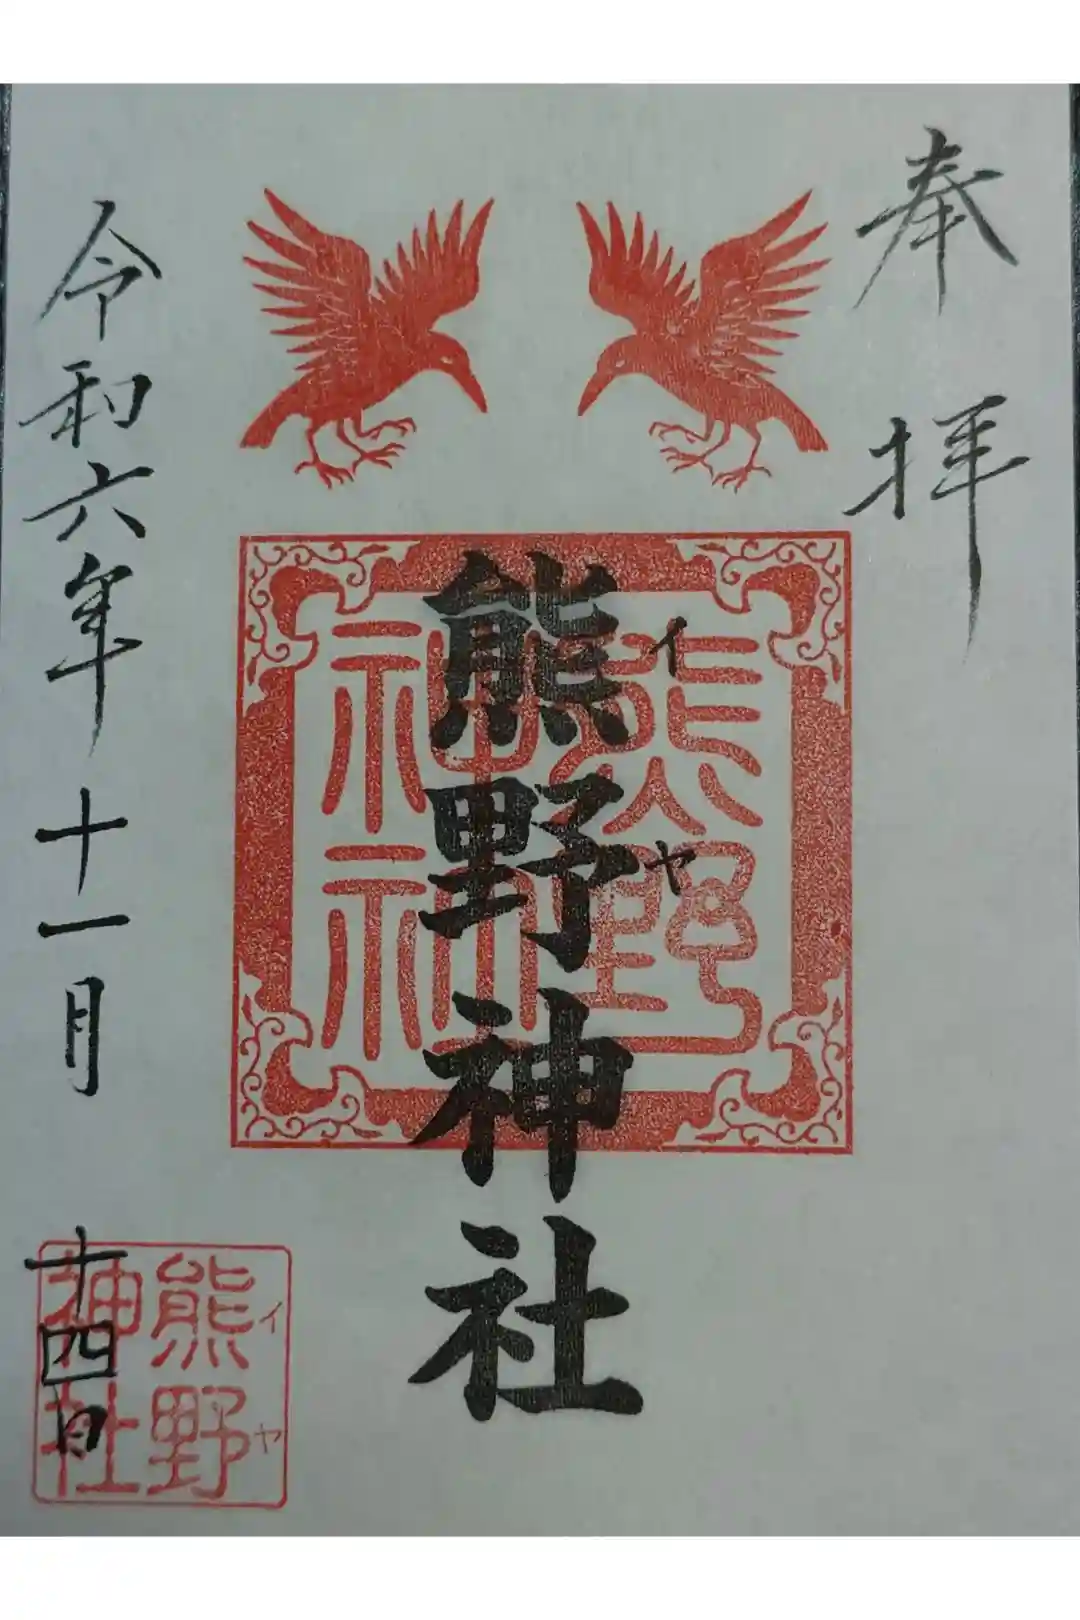 奉拝
熊野神社
イヤ
熊野
神社
令和六年十一月十四日
熊野
イヤ
神社